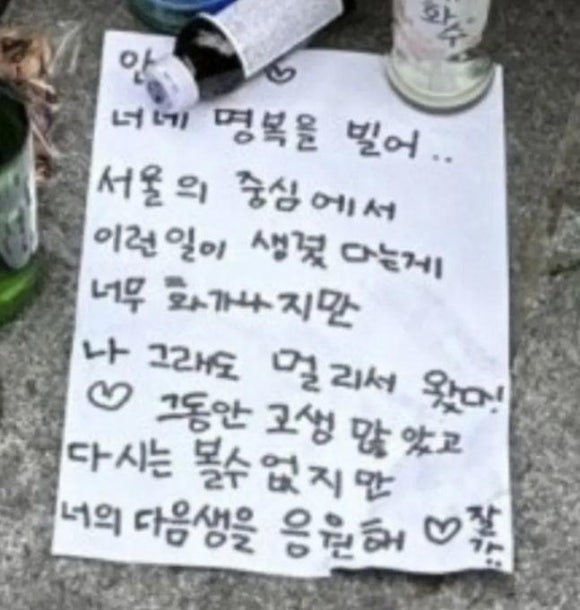 화수
안 ♡
너네 명복을 빌어..
서울의 중심에서
이런일이 생겼다는게
너무 화가나지만
나 그래도 멀리서 왔어!
♡ 그동안 고생 많았고
다시는 볼수 없지만
너의 다음생을 응원해 ♡ 잘가!!